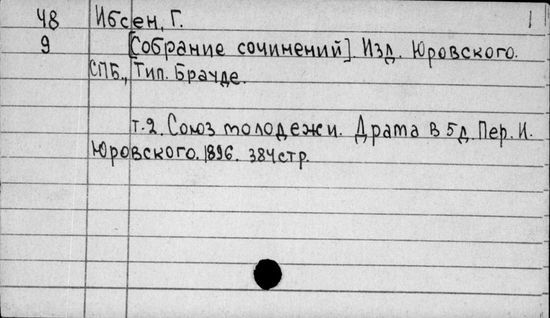 48 Ибсен, Г. 1
9 [Собрание сочинений]. Изд. Юровского.
СПБ., Тип. Брауде.
т.2. Союз молодежи. Драма в 5д. Пер. И.
Юровского. 1896. 384стр.